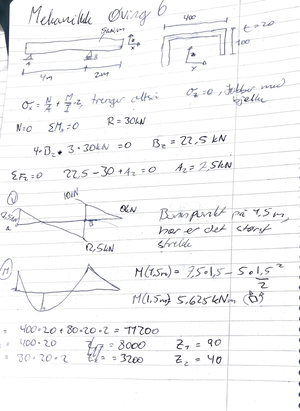 Mekanikk Øving 6
400
t=20
5kN/m
100
A
B
x
y
4m
2m
σx = N/A + M/I · z, trenger altså
σz = 0, jobber med
bjelke
N=0 ΣM₁=0 R = 30kN
4·B₂ - 3·30kN = 0 B₂ = 22,5 kN
ΣF₂=0 22,5 - 30 + A₂ = 0 A₂ = 7,5kN
V
10kN
7,5kN
0kN
A
B
12,5kN
på 1,5m,
her er det størst
M
M(1,5m) = 7,5·1,5 - 5·1,5²/2
M(1,5m) 5,625kNm
= 400·20 + 80·20·2 = 11200
= 400·20 = 8000 Z₁ = 90
= 80·20·2 = 3200 Z₂ = 40